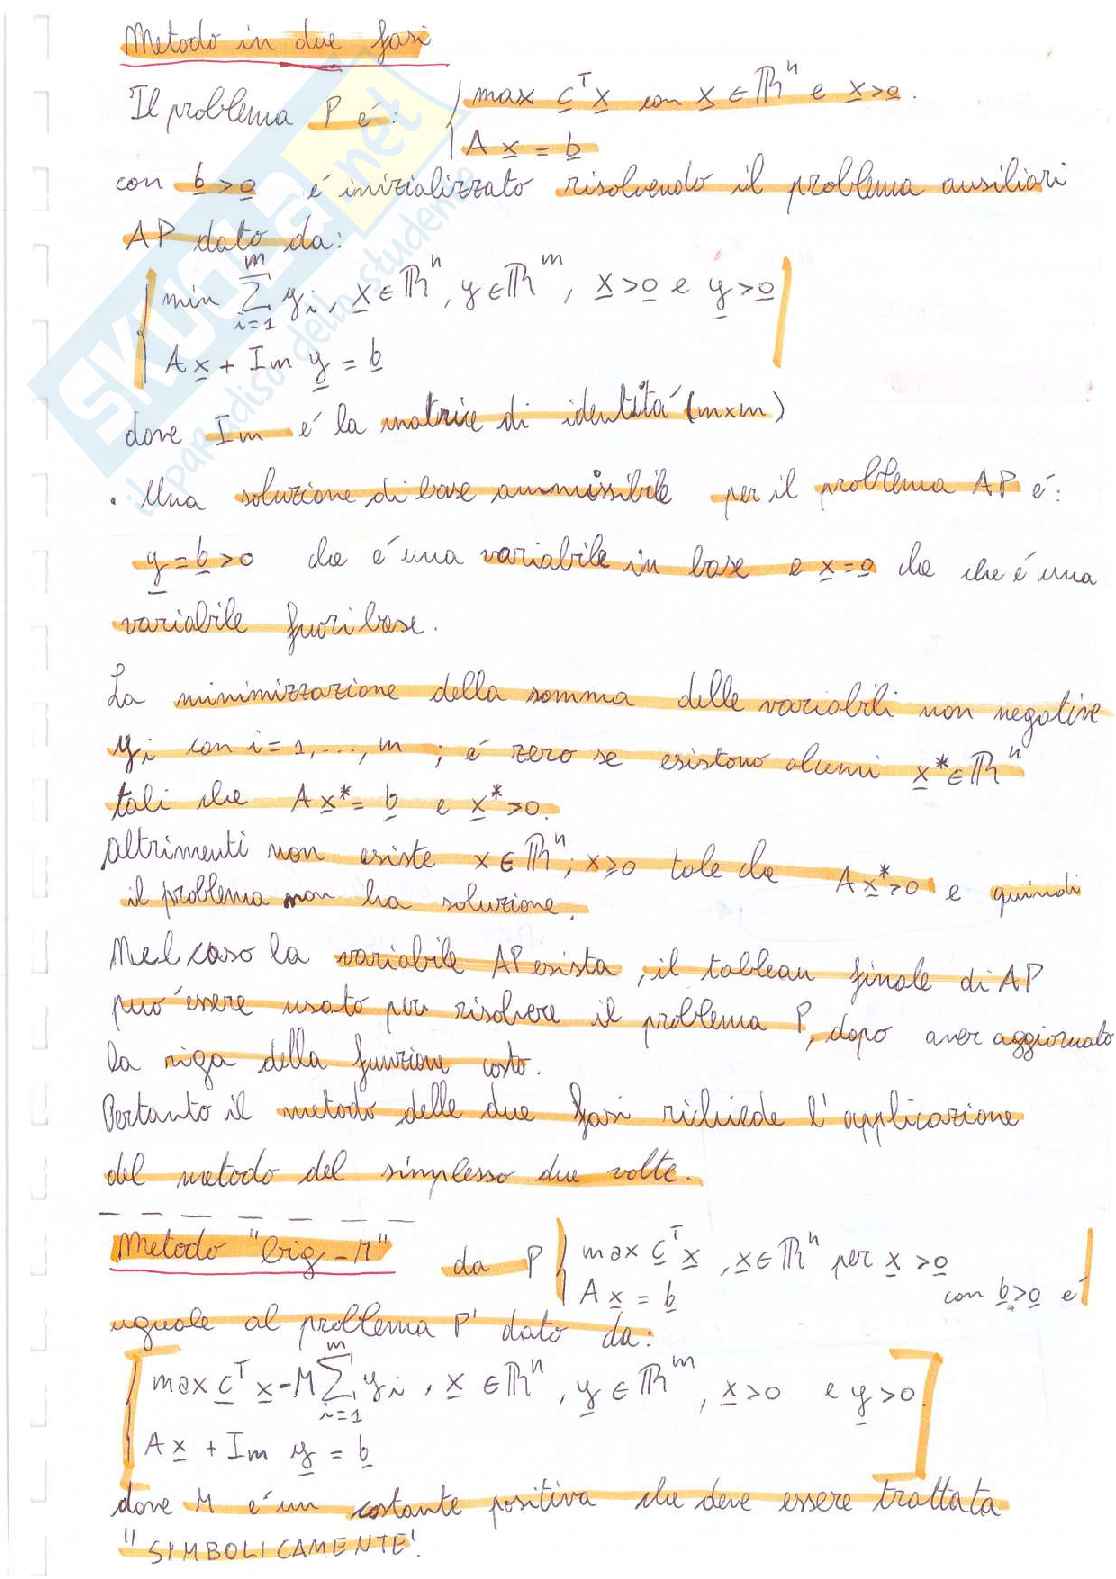 Metodo in due fasi
Il problema P é: { max c^T x con x ∈ ℝ^n e x>0.
A x = b
con b>0 é inizializzato risolvendo il problema ausiliari
AP dato da:
min ∑_{i=1}^{m} y_i, x∈ℝ^n, y∈ℝ^m, x>0 e y>0
A x + Im y = b
dove Im é la matrice di identitá (m×m)
• Una soluzione di base ammissibile per il problema AP é:
y=b>0 che é una variabile in base e x=0 che che é una
variabile fuori base.
La minimizzazione della somma delle variabili non negative
y_i con i=1,...,m ; é zero se esistono alcuni x*∈ℝ^n
tali che A x*= b e x*>0.
altrimenti non esiste x∈ℝ^n; x≥0 tale che A x*>0 e quindi
il problema non ha soluzione.
Nel caso la variabile AP esista, il tableau finale di AP
puó essere usato per risolvere il problema P, dopo aver aggiornato
la riga della funzione costo.
Pertanto il metodo delle due fasi richiede l'applicazione
del metodo del simplesso due volte.
Metodo "big-M" da P { max c^T x, x∈ℝ^n per x >0
A x = b con b>0 é
uguale al problema P' dato da:
max c^T x-M∑_{i=1}^{m} y_i, x ∈ℝ^n, y∈ℝ^m, x>0 e y>0
A x + Im y = b
dove M é un costante positiva che deve essere trattata
"SIMBOLICAMENTE".
SKUOLA.net
il paradiso dello studente